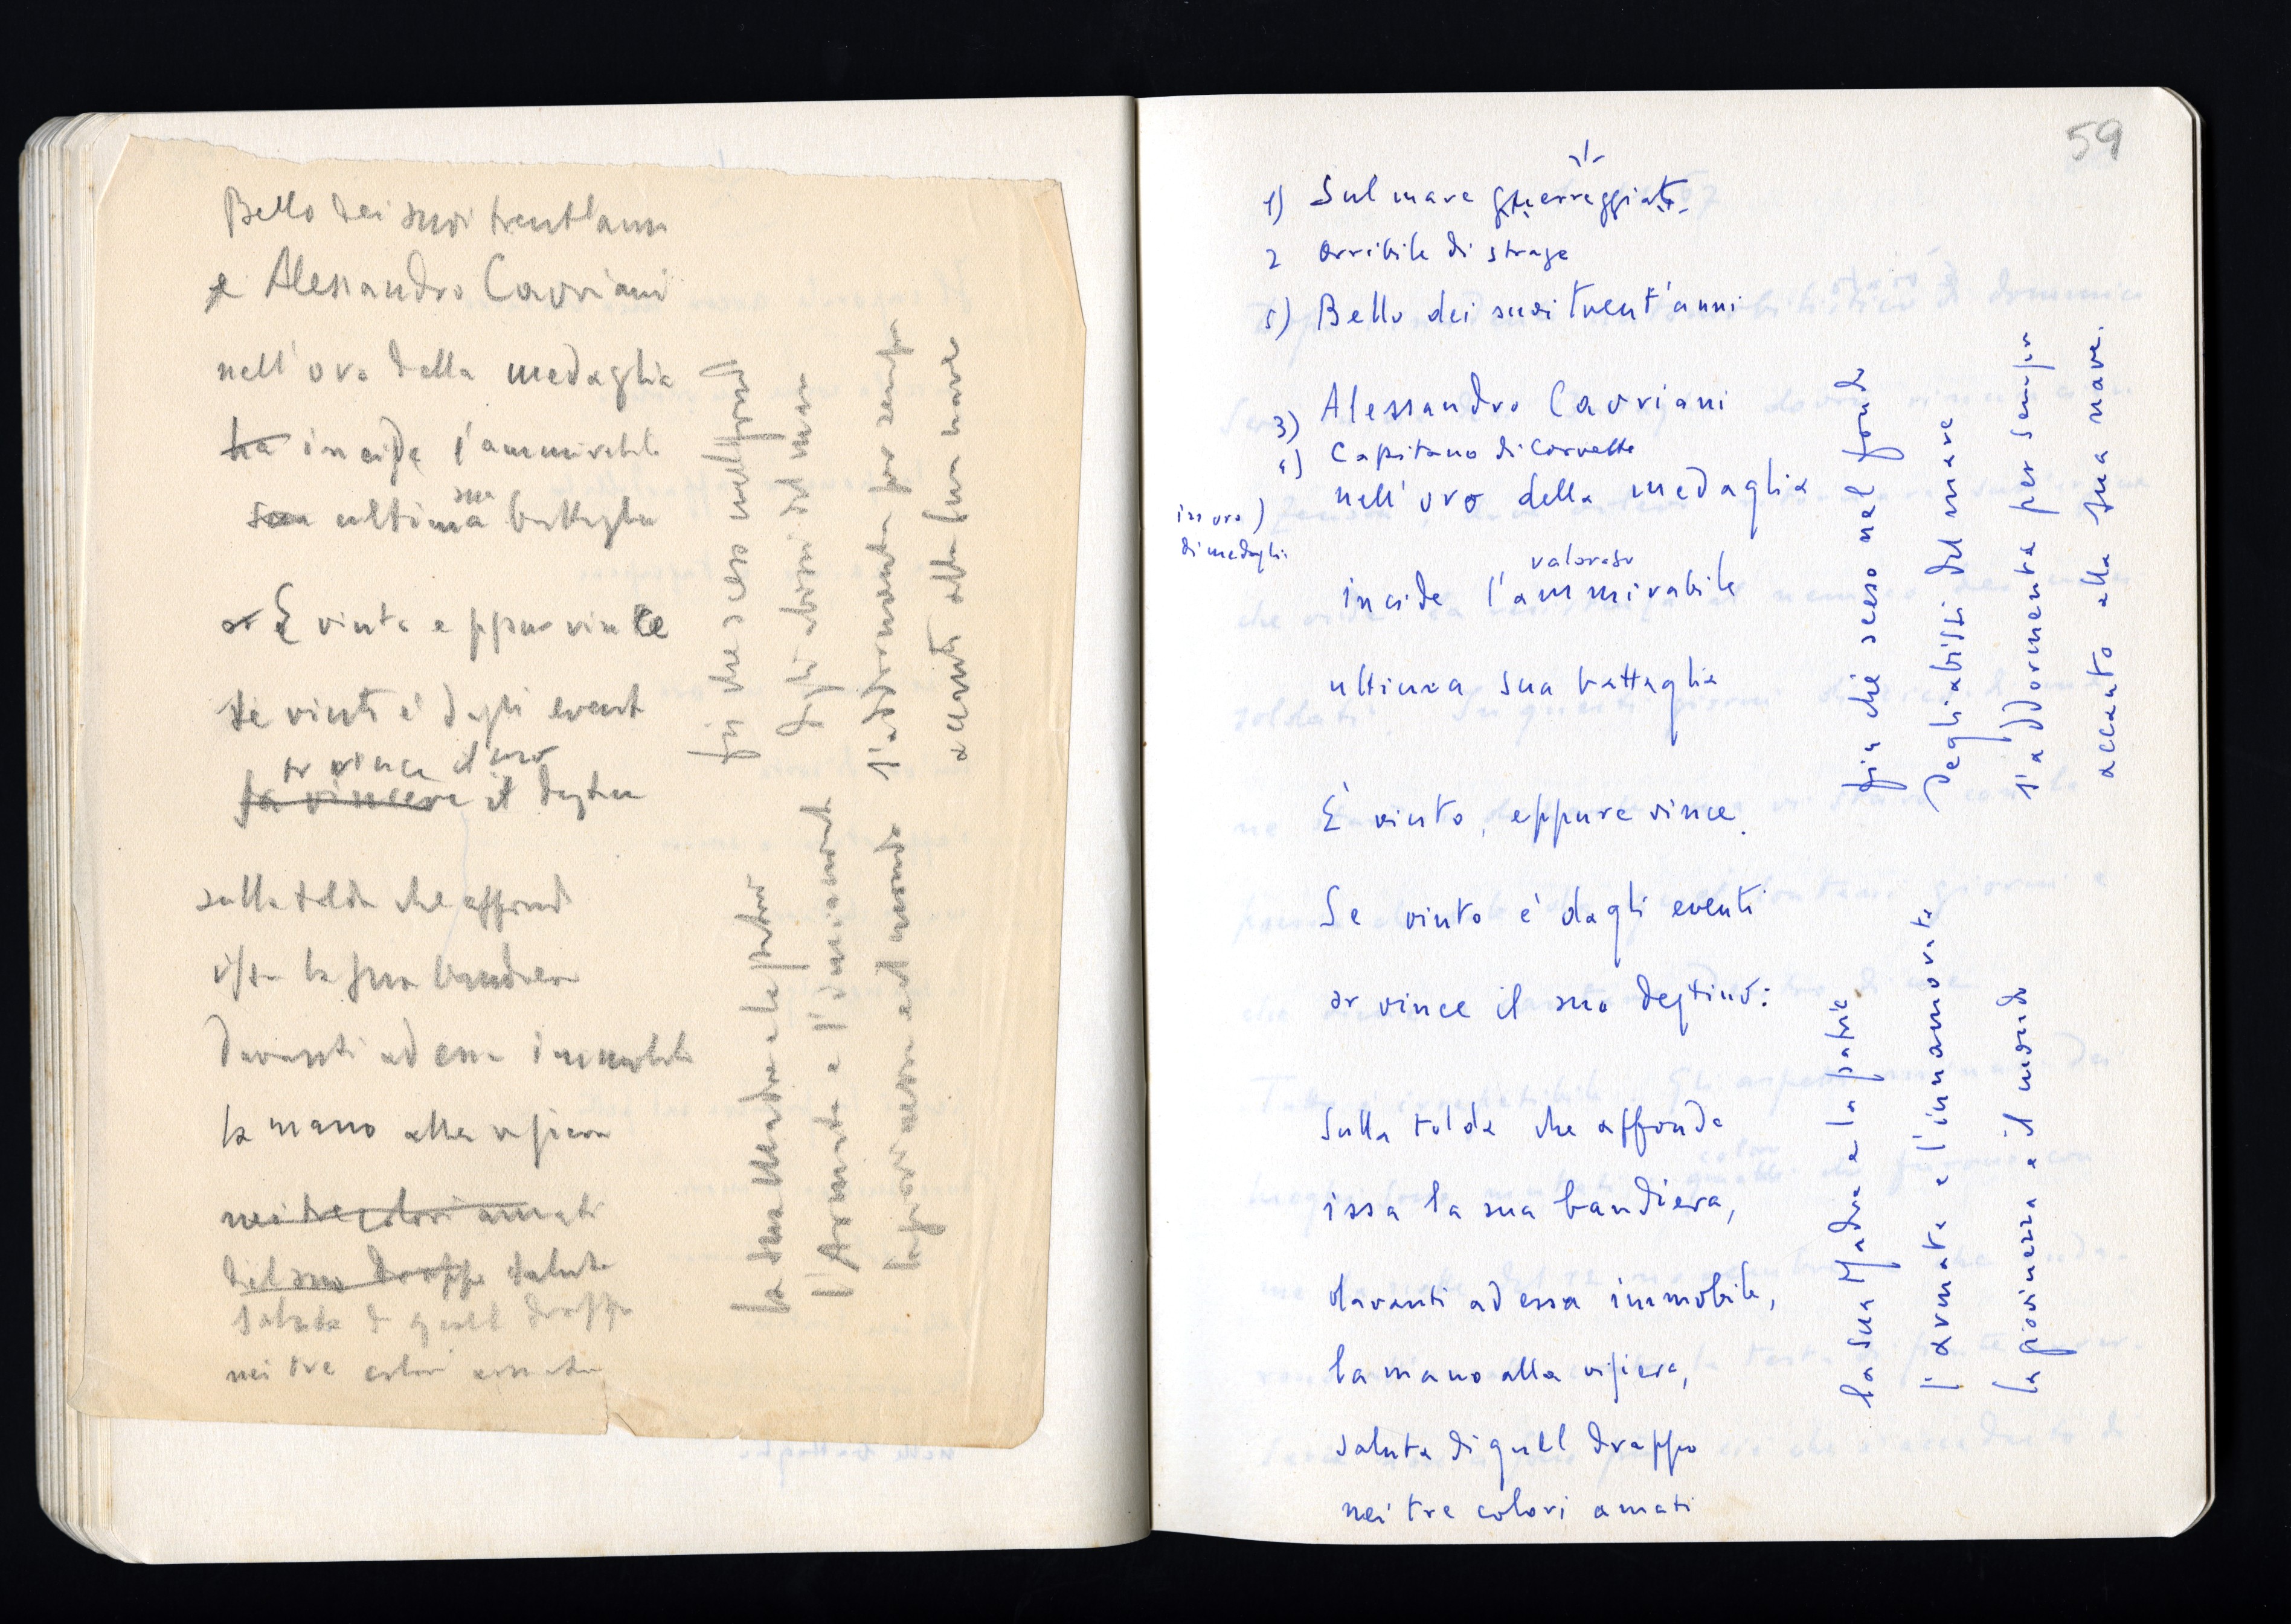 Bello dei suoi trent'anni
e Alessandro Cavriani
nell'oro della medaglia
ha incide l'ammirabile
sua ultima sua battaglia
or È vinto eppur vince
se vinto è dagli eventi
or vince il suo
fa vincere il destino
sulla tolda che affonda
issa la sua bandiera
davanti ad essa immobile
la mano alla visiera
nei tre colori amati
del suo drappo saluta
saluta di quell drappo
nei tre colori amati
la sua Madre e la patria
l'Armata e l'innamorata
la giovinezza e il mondo
fin che sceso nel fondo
degli abissi del mare
s'addormenta per sempre
accanto alla sua nave
59
1) Sul mare guerreggiato
2 orribile di strage
5) Bello dei suoi trent'anni
3) Alessandro Cavriani
4) Capitano di Corvetta
nell'oro della medaglia
in oro)
di medaglia
valoroso
incide l'ammirabile
ultima sua battaglia
È vinto, eppure vince.
Se vinto è dagli eventi
or vince il suo destino:
Sulla tolda che affonda
issa la sua bandiera,
davanti ad essa immobile,
la mano alla visiera,
saluta di quell drappo
nei tre colori amati
la sua Madre e la patria
l'armata e l'innamorata
la giovinezza e il mondo
fin che sceso nel fondo
degli abissi del mare
s'addormenta per sempre
accanto alla sua nave.